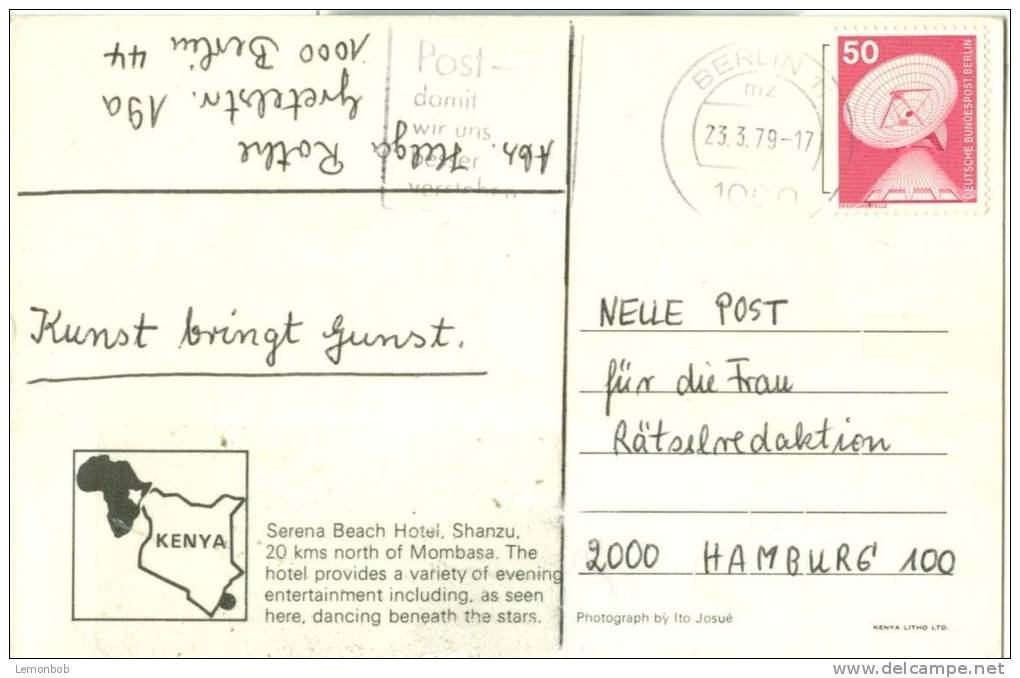 Abs. Helga Rothe
Gretelstr. 19a
1000 Berlin 44
Post-
damit
wir uns
besser
verstehen
BERLIN 11
mz
23.3.79-17
1000
50
DEUTSCHE BUNDESPOST BERLIN
Kunst bringt Gunst.
NEUE POST
für die Frau
Rätselredaktion
2000 HAMBURG 100
KENYA
Serena Beach Hotel, Shanzu,
20 kms north of Mombasa. The
hotel provides a variety of evening
entertainment including, as seen
here, dancing beneath the stars.
Photograph by Ito Josué
KENYA LITHO LTD.
Lemonbob
delcampe.net